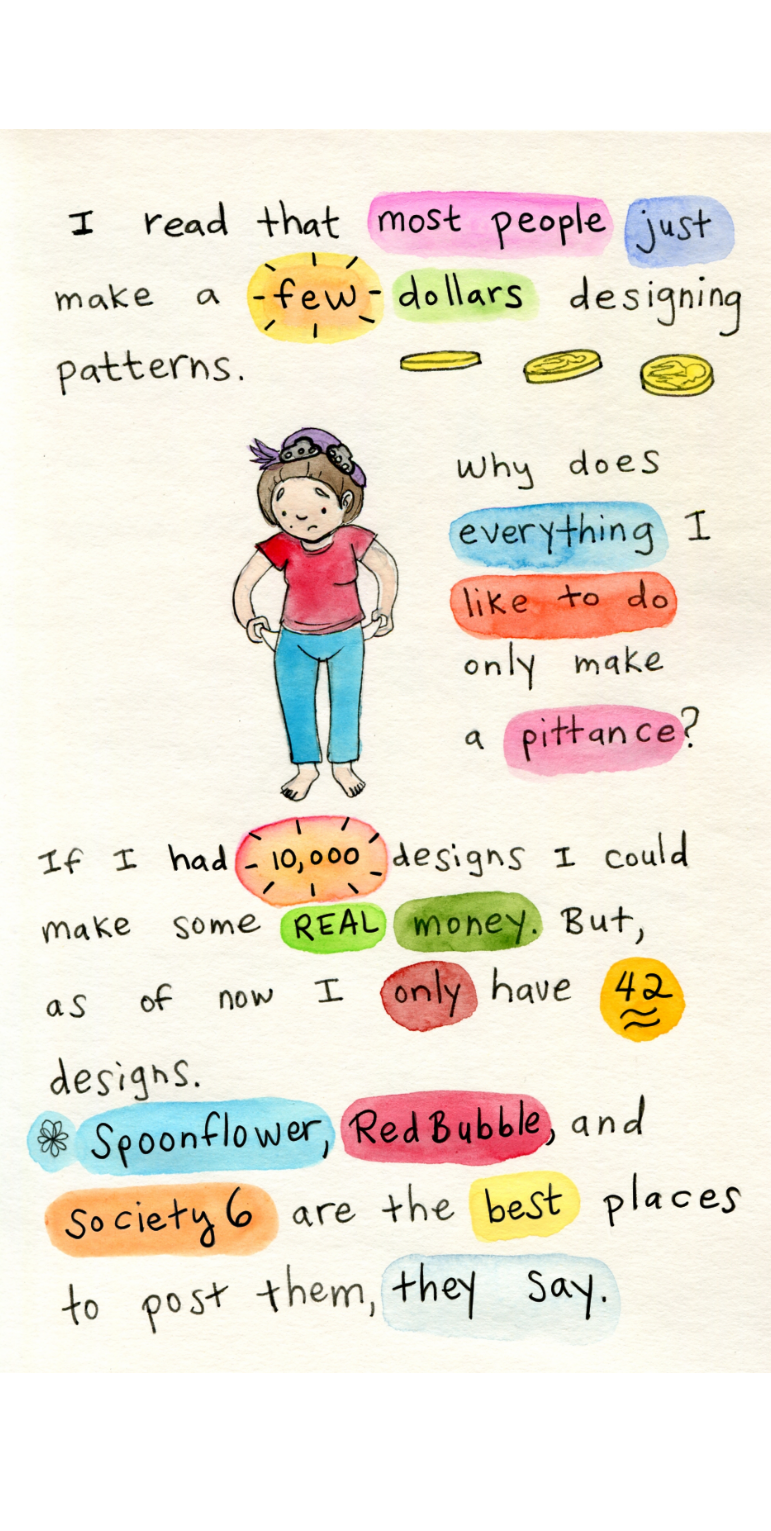 I read that most people just
make a few dollars designing
patterns.
Why does
everything I
like to do
only make
a pittance?
If I had 10,000 designs I could
make some REAL money. But,
as of now I only have 42
designs.
Spoonflower, RedBubble, and
Society6 are the best places
to post them, they say.